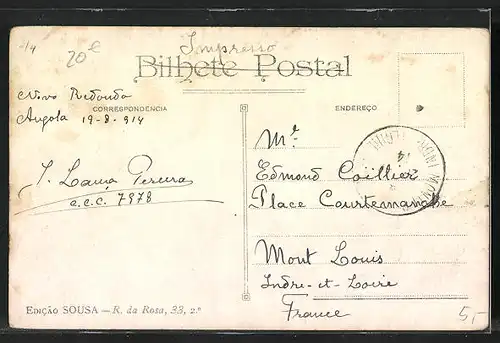 -/4
20
Impresso
Bilhete Postal
Novo Redondo
CORRESPONDENCIA
ENDEREÇO
Angola 19-8-914
Mr
Edmond Caillier
Place Courtemanche
J. Lama Pereira
a.c.c. 7978
Mont Louis
Indre-et-Loire
France
EDIÇÃO SOUSA — R. da Rosa, 33, 2.º
5,-